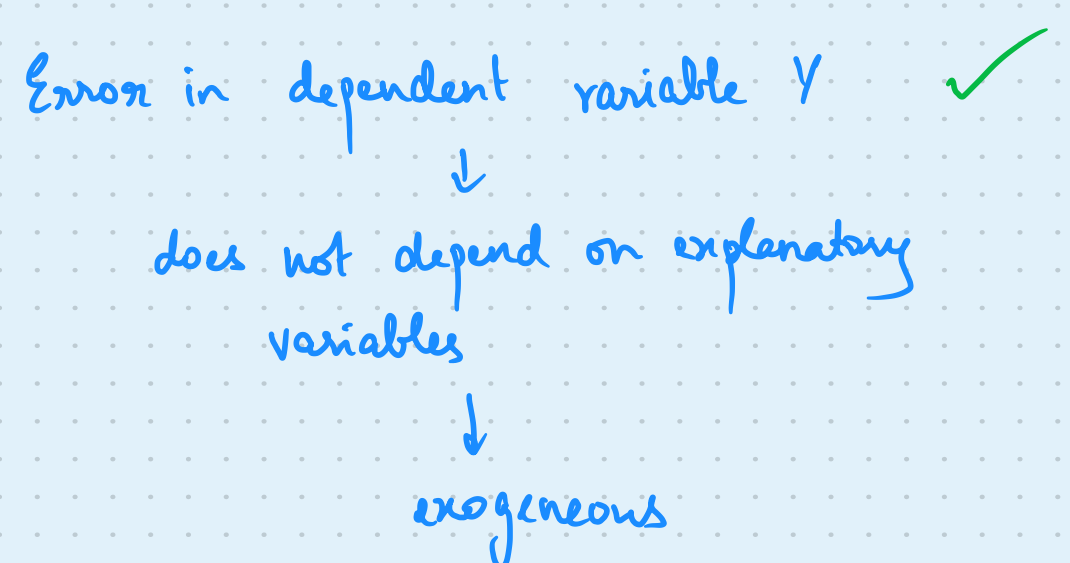 Error in dependent variable Y
does not depend on explanatory
variables
exogeneous